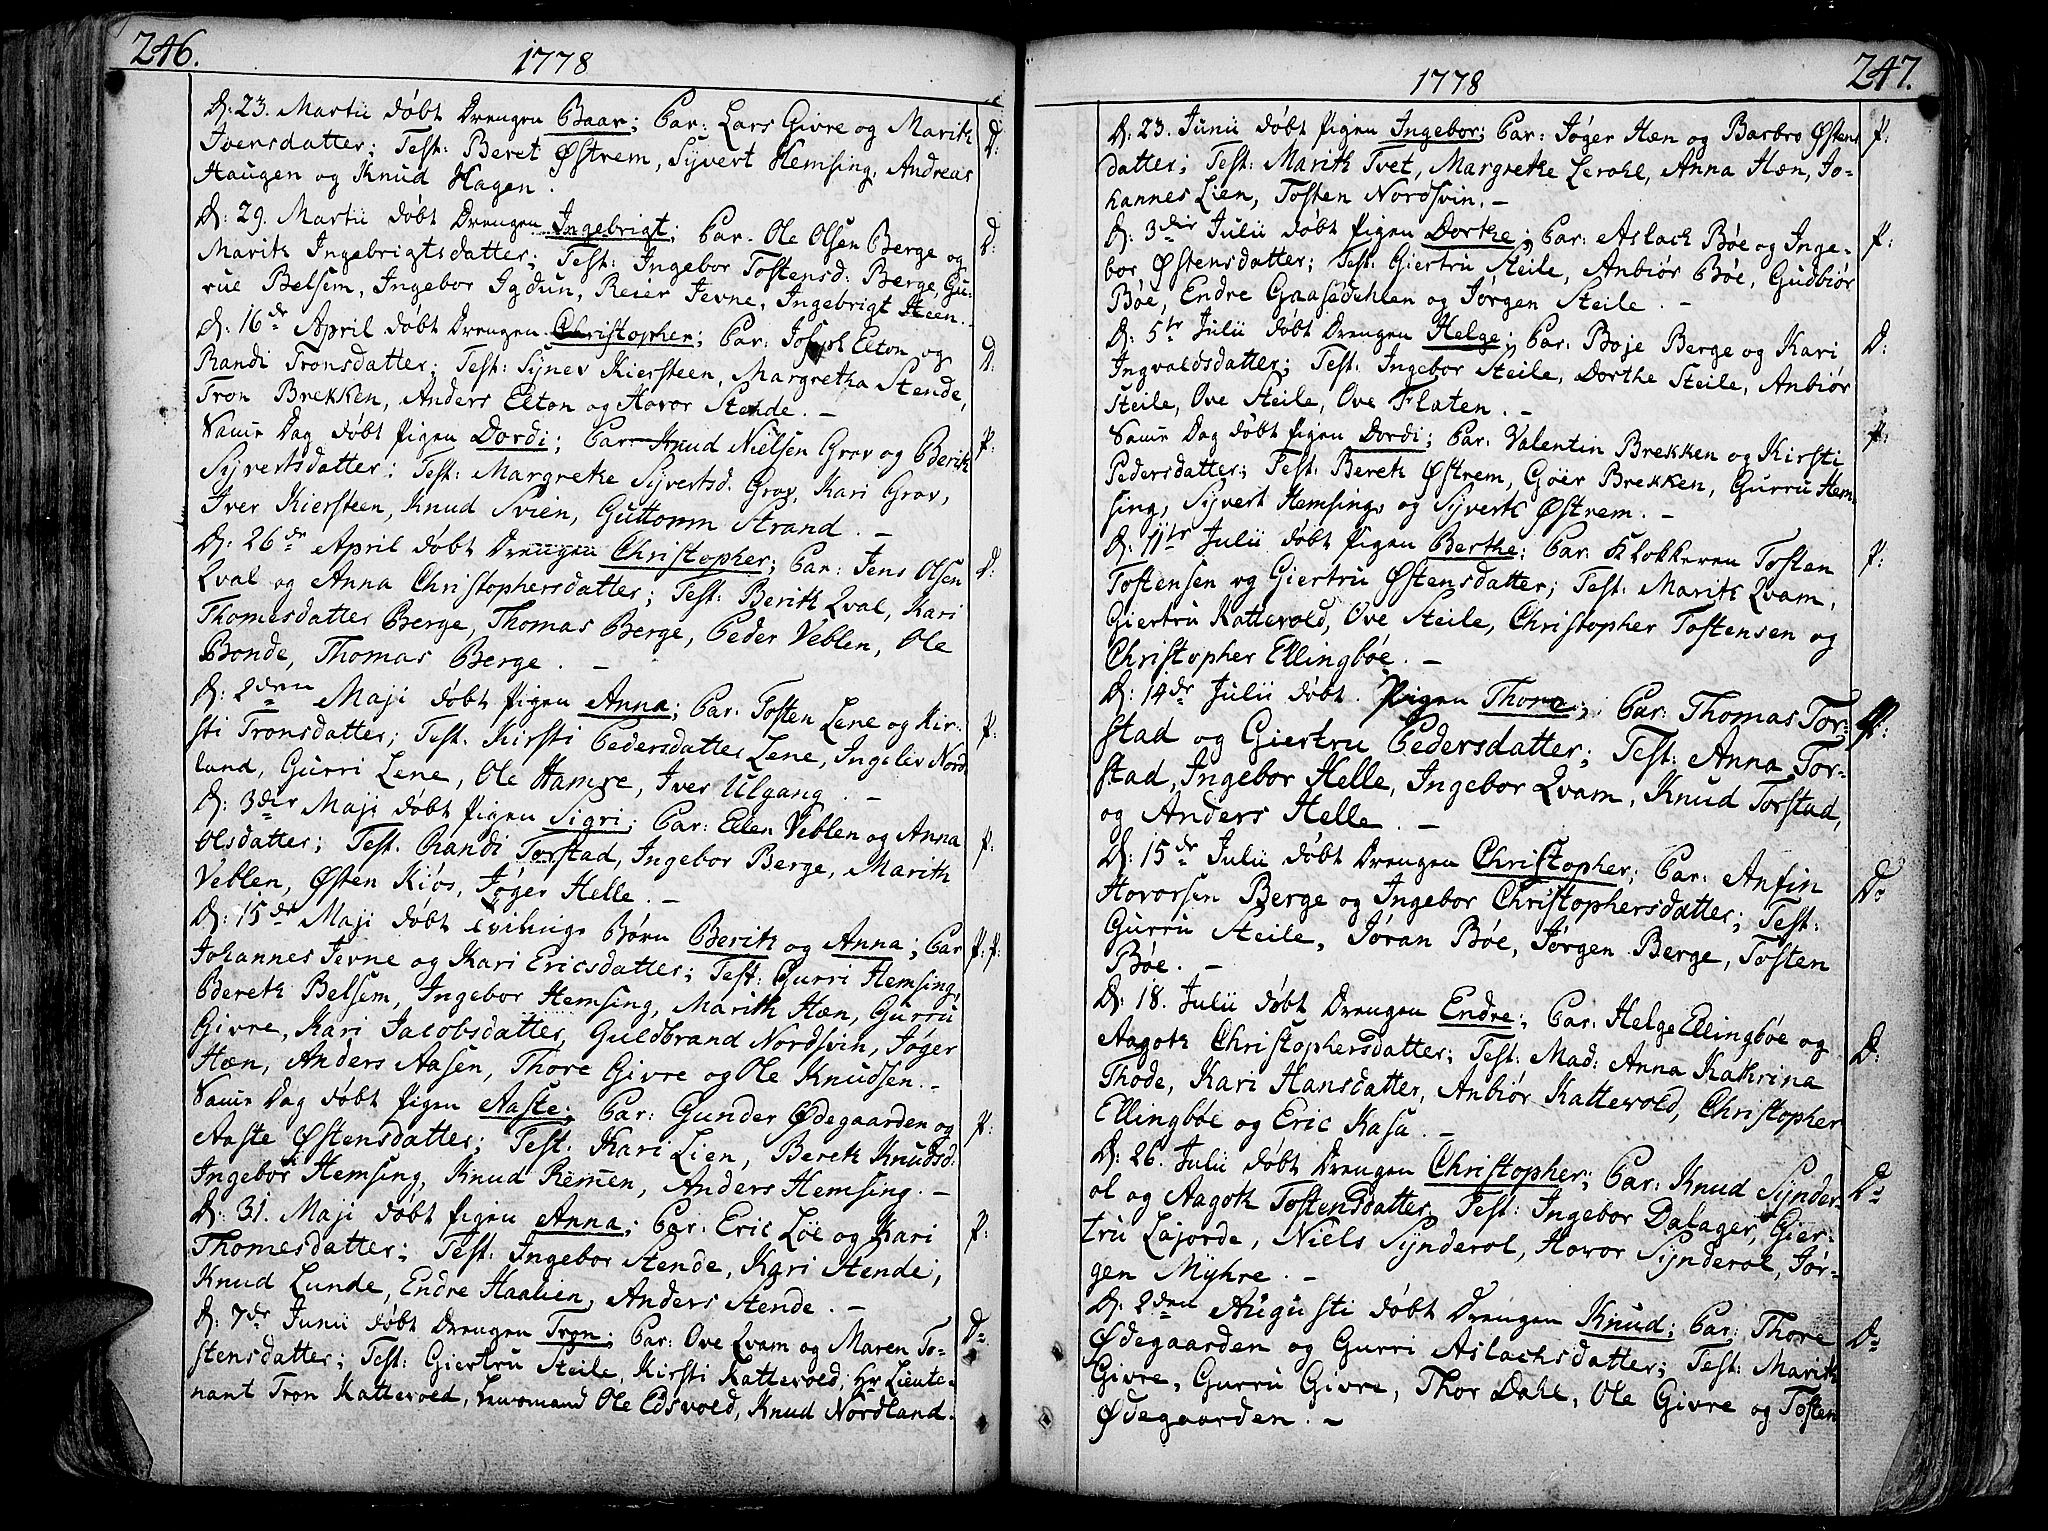 246.
1778
D: 23. Martii døbt Drengen Baar; Par: Lars Givre og Marith D:
Iversdatter; Test: Beret Østrem, Syvert Hemsing, Andreas
Haugen og Knud Hagen.
D: 29. Martii døbt Drengen Ingebrigt; Par. Ole Olsen Berge og D:
Marith Ingebrigtsdatter; Test: Ingebor Tostensd: Berge, Gu-
rue Belsem, Ingebor Igdun, Reier Jevne, Ingebrigt Steen.
D: 16de April døbt Drengen Christopher; Par: Joseph Elton og D:
Randi Tronsdatter; Test: Synev Kiersteen, Margretha Stende,
Tron Brekken, Anders Elton og Hovor Stende. –
Same Dag døbt Pigen Dordi; Par: Knud Nielsen Grov og Berith P:
Syvertsdatter: Test: Margrethe Syvertsd. Grov, Kari Grov,
Iver Kiersteen, Knud Svien, Guttorm Strand. –
D: 26de April døbt Drengen Christopher; Par: Jens Olsen D:
Qval og Anna Christophersdatter; Test: Berith Qval, Kari
Thomesdatter Berge, Thomas Berge, Peder Veblen, Ole
Bonde, Thomas Berge. –
D: 2den Maji døbt Pigen Anna; Par: Tosten Lene og Kir- P:
sti Tronsdatter; Test. Kirsti Pedersdatter Lene, Ingeliv Nord
land, Gurri Lene, Ole Hamre, Iver Ulgang. –
D: 3die Maji døbt Pigen Sigri; Par: Ellen Veblen og Anna P:
Olsdatter; Test. Randi Torstad, Ingebor Berge, Marith
Veblen, Østen Kiøs, Jøger Helle. –
D: 15de Maji døbt tvilings Børn Berith og Anna; Par P: P:
Johannes Jevne og Kari Ericsdatter; Test: Gurri Hemsing,
Bereth Belsem, Ingebor Hemsing, Marith Hæn, Gurru
Givre, Kari Jacobsdatter, Guldbrand Nordsvin, Jøger
Hæn, Anders Aasen, Thore Givre og Ole Knudsen. –
Same Dag døbt Pigen Aaste; Par: Gunder Ødegaarden og P:
Aaste Østensdatter; Test: Kari Lien, Bereth Knudsd:
Ingebor Hemsing, Knud Remen, Anders Hemsing. –
D: 31. Maji døbt Pigen Anna; Par: Eric Løe og Kari P:
Thomesdatter; Test: Ingebor Stende, Kari Stende,
Knud Lunde, Endre Haalien, Anders Stende. –
D: 7de Junii døbt Drengen Tron; Par: Ove Qvam og Maren To- D:
stensdatter; Test: Giertru Steile, Kirsti Kattevold, Hr Lieute-
nant Tron Kattevold, Ole Edsvold, Knud Nordland.
247.
1778
D: 23. Junii døbt Pigen Ingebor; Par: Jøger Hæn og Barbro Østens P:
datter; Test: Marith Tvet, Margrethe Lerohl, Anna Hæn, Jo-
hannes Lien, Tosten Nordsvin. –
D: 3die Julii døbt Pigen Dorthe; Par: Aslach Bøe og Inge- P:
bor Østensdatter; Test: Giertru Steile, Anbiør Bøe, Gudbiør
Bøe, Endre Gaasedehlen og Jørgen Steile. –
D: 5te Julii døbt Drengen Helge; Par: Boje Berge og Kari D:
Ingvaldsdatter; Test: Ingebor Steile, Dorthe Steile, Anbiør
Steile, Ove Steile, Ove Flaten. –
Same Dag døbt Pigen Dordi; Par: Valentin Brekken og Kirsti P:
Pedersdatter; Test: Bereth Østrem, Gøer Brekken, Gurru Hem
sing, Syvert Hemsing, og Syverth Østrem. –
D: 11te Julii døbt Pigen Berthe; Par: Klokkeren Tosten P:
Tostensen og Giertru Østensdatter; Test: Marith Qvam,
Giertru Kattevold, Ove Steile, Christopher Tostensen og
Christopher Ellingbøe. –
D: 14de Julii døbt Pigen Thore; Par: Thomas Tor- P:
stad og Giertru Pedersdatter; Test: Anna Tor-
stad, Ingebor Helle, Ingebor Qvam, Knud Torstad,
og Anders Helle. –
D: 15de Julii døbt Drengen Christopher; Par: Anfin D:
Hovorsen Berge og Ingebor Christophersdatter; Test:
Gurru Steile, Jøran Bøe, Jørgen Berge, Tosten
Bøe. –
D: 18. Julii døbt Drengen Endre; Par: Helge Ellingbøe og D:
Aagoth Christophersdatter; Test: Mad: Anna Kathrina
Thode, Kari Hansdatter, Anbiør Kattevold, Christopher
Ellingbøe og Eric Kasa. –
D: 26. Julii døbt Drengen Christopher; Par: Knud Synder- D:
ol og Aagoth Tostensdatter, Test: Ingebor Dalager, Gier-
tru Lajorde, Niels Synderol, Hovor Synderol, Jør-
gen Myhre. –
D: 2den Augusti døbt Drengen Knud; Par: Thore D:
Ødegaarden og Gurri Aslachsdatter; Test: Marith
Givre, Gurru Givre, Thor Dahl, Ole Givre og Tosten
Ødegaarden. –